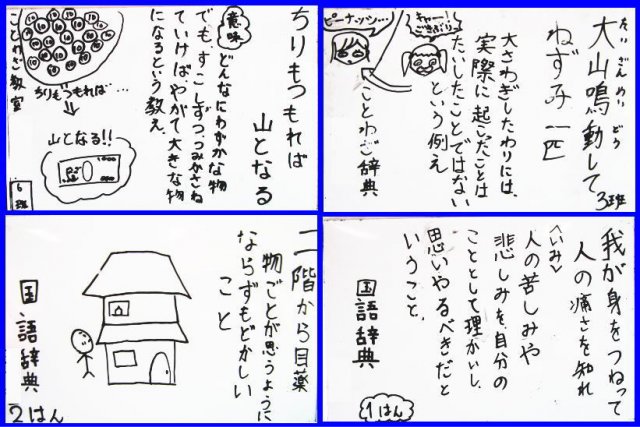 ちりもつもれば
山となる
意味
どんなにわずかな物
でも、すこしずつ、つみかさね
ていけばやがて大きな物
になるという教え。
ちりもつもれば…
山となる!!
ことわざ教室
6班
大山鳴動して
たいざんめいどう
ねずみ一匹
大さわぎしたわりには、
実際に起こったことは
たいしたことではない
という例え
キャー!
ごきぶり
ピーナッツ…
ことわざ辞典
3班
二階から目薬
物ごとが思うように
ならずもどかしい
こと
国語辞典
2はん
我が身をつねって
人の痛さを知れ
〈いみ〉
人の苦しみや
悲しみを、自分の
こととして理かいし、
思いやるべきだと
いうこと。
国語辞典
1はん